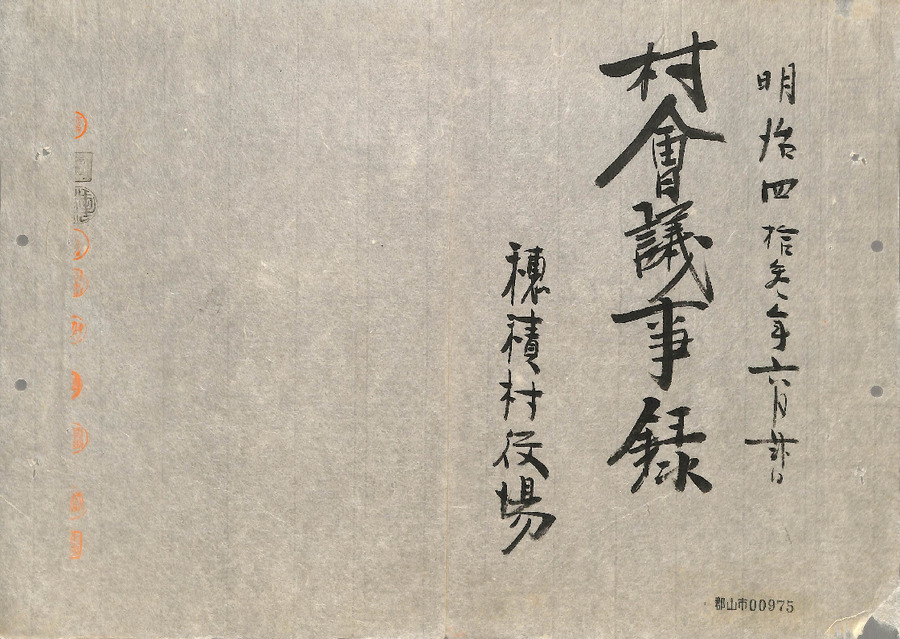 明治四拾参年六月廿日
村會議事録
穂積村役場
郡山市00975